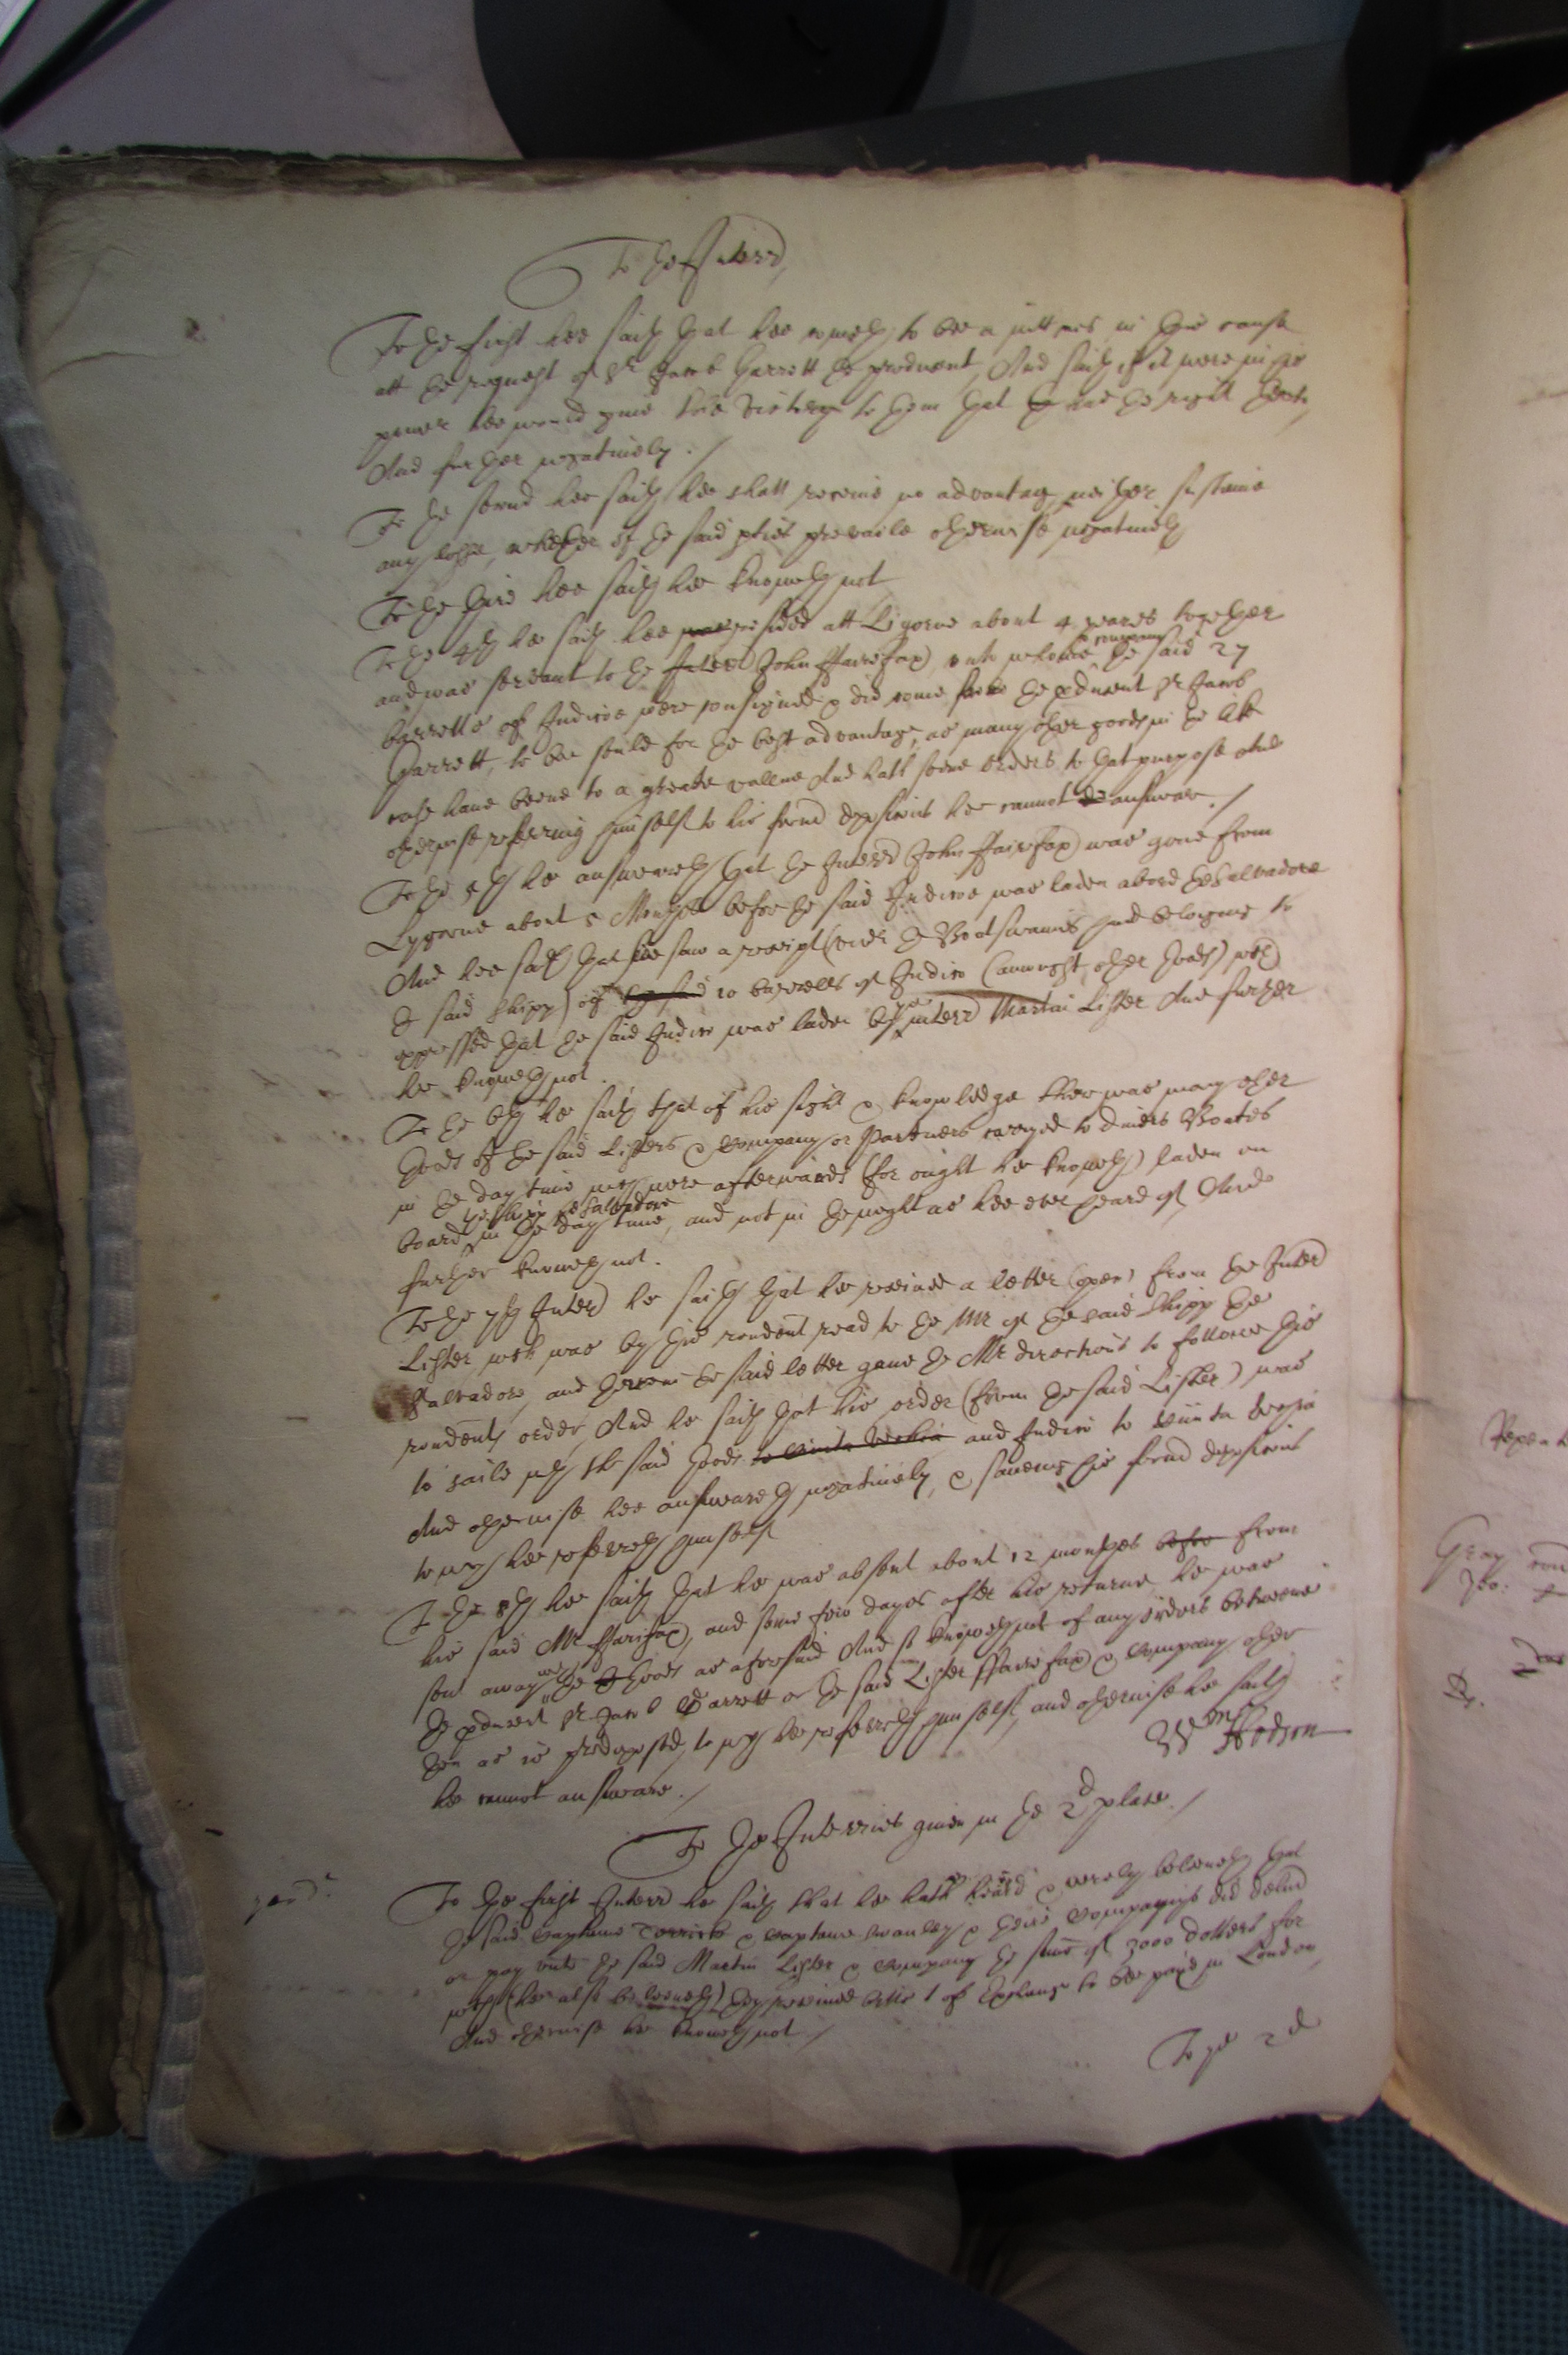 To the Interr
To the first hee saith that hee cometh to bee a wittnes in this cause
att the request of Sr Jacob Garrett the producent, And saith if it were in his
power hee would give the victory to them that hath the right thereto,
And further negatively ./
To the second hee saith hee shall receive no advantag neither sustaine
any losse, whether of the said pties prevaile otherwise negatively
To the third hee saith hee knoweth not
To the 4th he saith hee was resided att Ligorne about 4 yeares together
and was servant to the Interr John ffairefax, unto whome & company the said 27
barrells of Indicoe were consigned & did come from the pducent Sr Jacob
Garrett, to bee sould for the best advantage, as many other goods in the like
case have beene to a greate vallue And hath seene orders to that purpose And
otherwise referring himselfe to his forme deposicions hee cannot answare ./
To the 5th he answereth that the Interr John ffairefax was gone from
Lygorne about 5 Monthes before the said Indicoe was laden abord the Salvadore
And hee saith that hee saw a receipt (under the Boatswaines hand belonging to
the said shipp) of the said 20 barrells of Indico (amongst other goods) wch
expressed that the said Indico was laden by ye interr Martin Lister And further
he knoweth not.
To the 6th he saith that of his sight & knowledge there was many other
goods of the said Listers & company or Partners carryed to divers Boates
in the day time wch were afterwards (for ought he knoweth) laden on
board ye shipp ye Salvadore in the day time, and not in the night as hee ever heard of And
further knoweth not.
To the 7th Interr he saith that he received a letter (open) from the Interr
Lister, wch was by this rendent read to the Mr of the said shipp the
Salvadore, and therein the said letter gave the Mr directions to followe this
rendents order, And he saith that his order (from the said Lister) was
to saile wth the said goods to Civita Vechia and Indico to Civita Vechia
And otherwise hee answareth negatively, & saveing his forme deposicions
to wch hee referreth himselfe
To the 8th he saith that he was absent about 12 monthes before from
his said Mr ffairefax, and some few dayes after his returne he was
sent away wth the goods as aforesaid And so knoweth not of any orders betweene
the pducent Sr Jacob Garrett or the said Lister ffairefax & company other
then as is predeposed, to wch he referreth himselfe, and otherwise he saith
he cannot answare ./
Wm Hodson
To the Interries given in the 2d place ./
To the first Interr he saith that he hath heard & verely beleeveth that
the said Captaine & Captaine & their Companys did deliver
or pay unto the said Martin Lister & company the sume of 3000 dollers for
wch (hee also beleeveth) they received bills of Exchange to be paid in London,
And otherwise he knoweth not /
To ye 2d